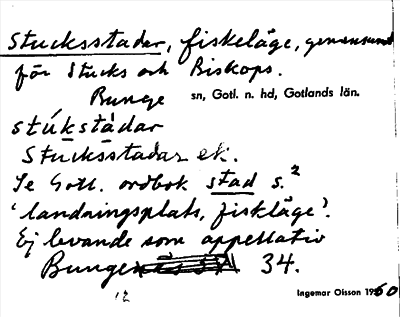 Stucksstadar, fiskeläge, gemensamt
för Stucks och Biskops.
Bunge sn, Gotl. n. hd, Gotlands län.
stúkstàdar
Stucksstadar ek.
Se Gotl. ordbok stad s.2
'landningsplats, fiskläge'.
Ej levande som appellativ
Bunge 34.
12 Ingemar Olsson 1960